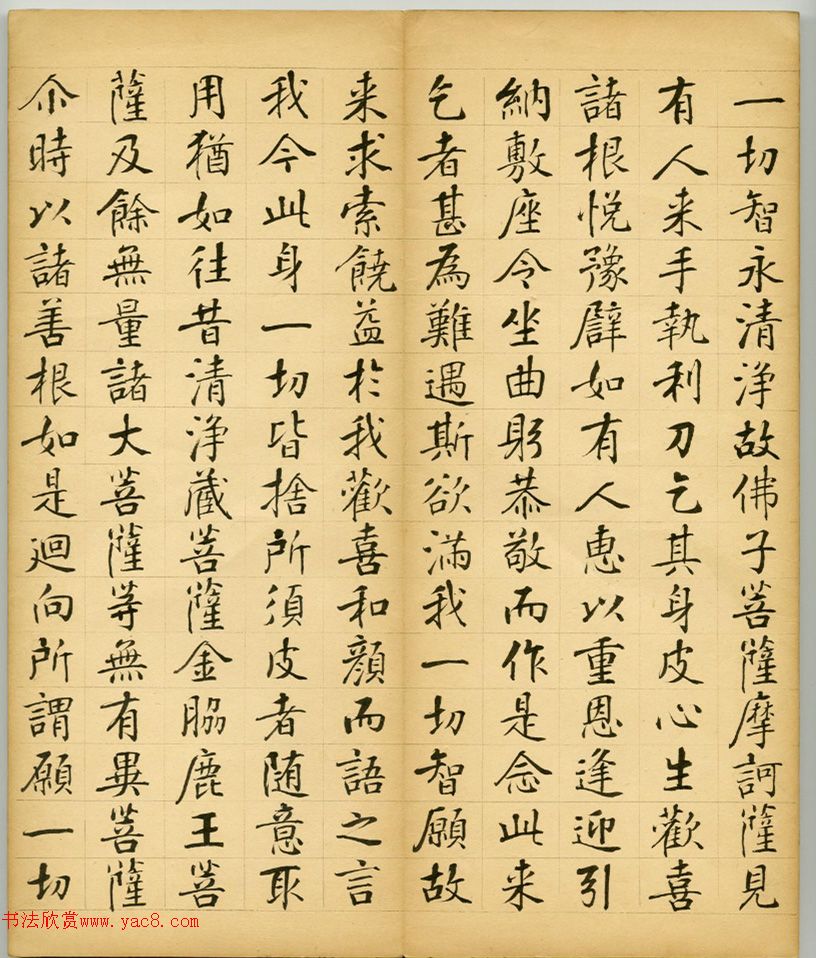 一切智永清淨故佛子菩薩摩訶薩見
有人来手執利刀乞其身皮心生歡喜
諸根悦豫譬如有人惠以重恩逢迎引
納敷座令坐曲躬恭敬而作是念此来
乞者甚為難遇斯欲滿我一切智願故
来求索饒益於我歡喜和顏而語之言
我今此身一切皆捨所須皮者随意取
用猶如往昔清淨藏菩薩金脇鹿王菩
薩及餘無量諸大菩薩等無有異菩薩
尒時以諸善根如是迴向所謂願一切
书法欣赏www.yac8.com